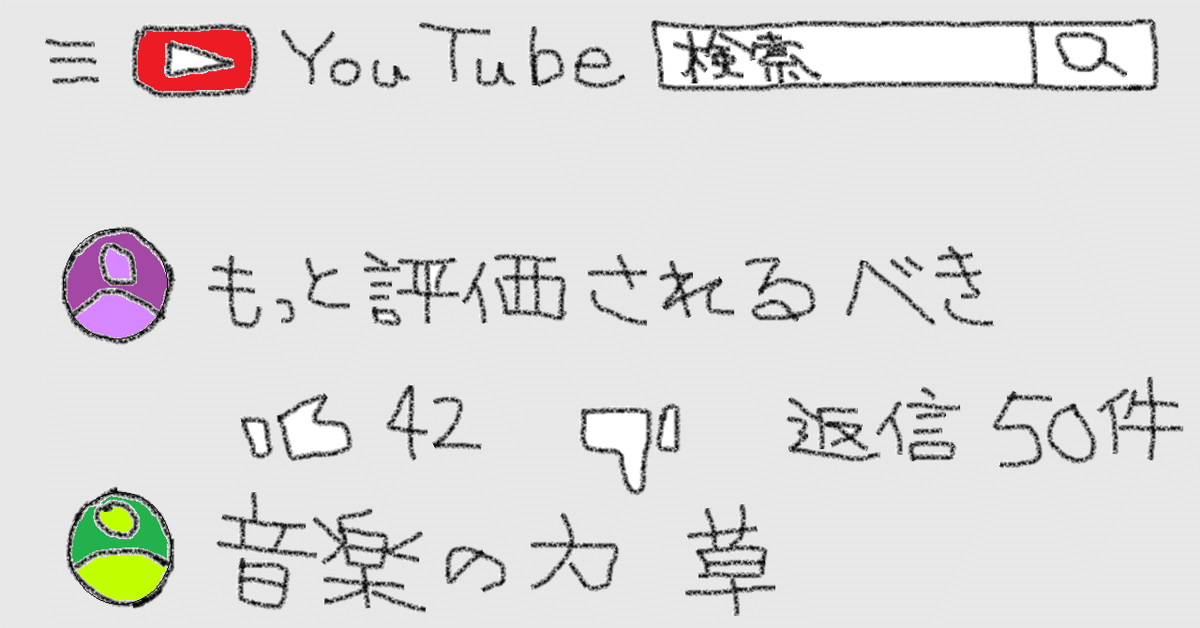 YouTube 検索
もっと評価されるべき
42 返信50件
音楽の力 草